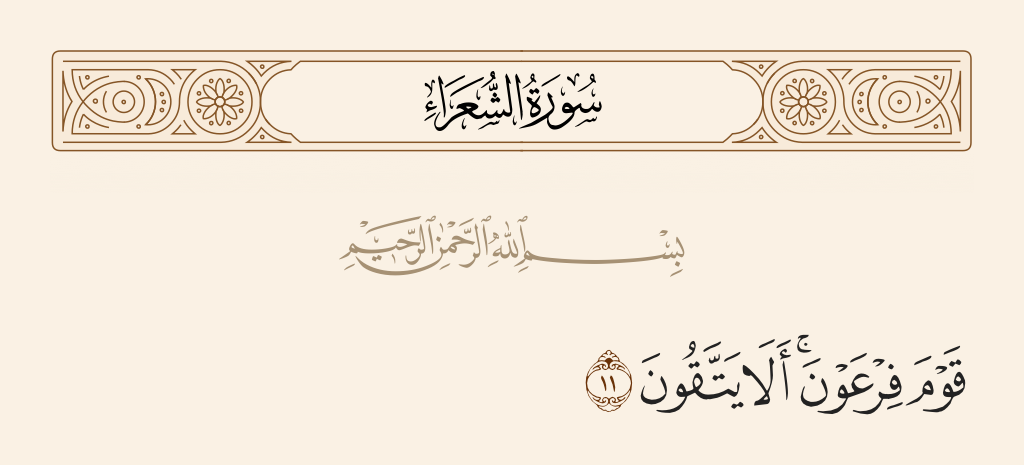 سُورَةُ الشُّعَرَاءِ
بِسْمِ ٱللَّهِ ٱلرَّحْمَٰنِ ٱلرَّحِيمِ
قَوْمَ فِرْعَوْنَ ۚ أَلَا يَتَّقُونَ ١١